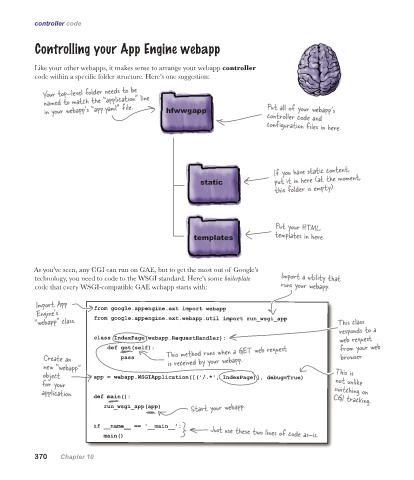 controller code
Controlling your App Engine webapp
Like your other webapps, it makes sense to arrange your webapp controller
code within a specific folder structure. Here's one suggestion:
Your top-level folder needs to be
named to match the "application" line
in your webapp's "app.yaml" file.
hfwwgapp
Put all of your webapp's
controller code and
configuration files in here.
static
If you have static content,
put it in here (at the moment,
this folder is empty).
templates
Put your HTML
templates in here.
As you've seen, any CGI can run on GAE, but to get the most out of Google's
technology, you need to code to the WSGI standard. Here's some boilerplate
code that every WSGI-compatible GAE webapp starts with:
Import a utility that
runs your webapp.
Import App
Engine's
"webapp" class.
from google.appengine.ext import webapp
from google.appengine.ext.webapp.util import run_wsgi_app
class IndexPage(webapp.RequestHandler):
def get(self):
pass
This method runs when a GET web request
is received by your webapp.
This class
responds to a
web request
from your web
browser.
Create an
new "webapp"
object
for your
application.
app = webapp.WSGIApplication([('/.*', IndexPage)], debug=True)
This is
not unlike
switching on
CGI tracking.
def main():
run_wsgi_app(app)
Start your webapp.
if __name__ == '__main__':
main()
Just use these two lines of code as-is.
370 Chapter 10